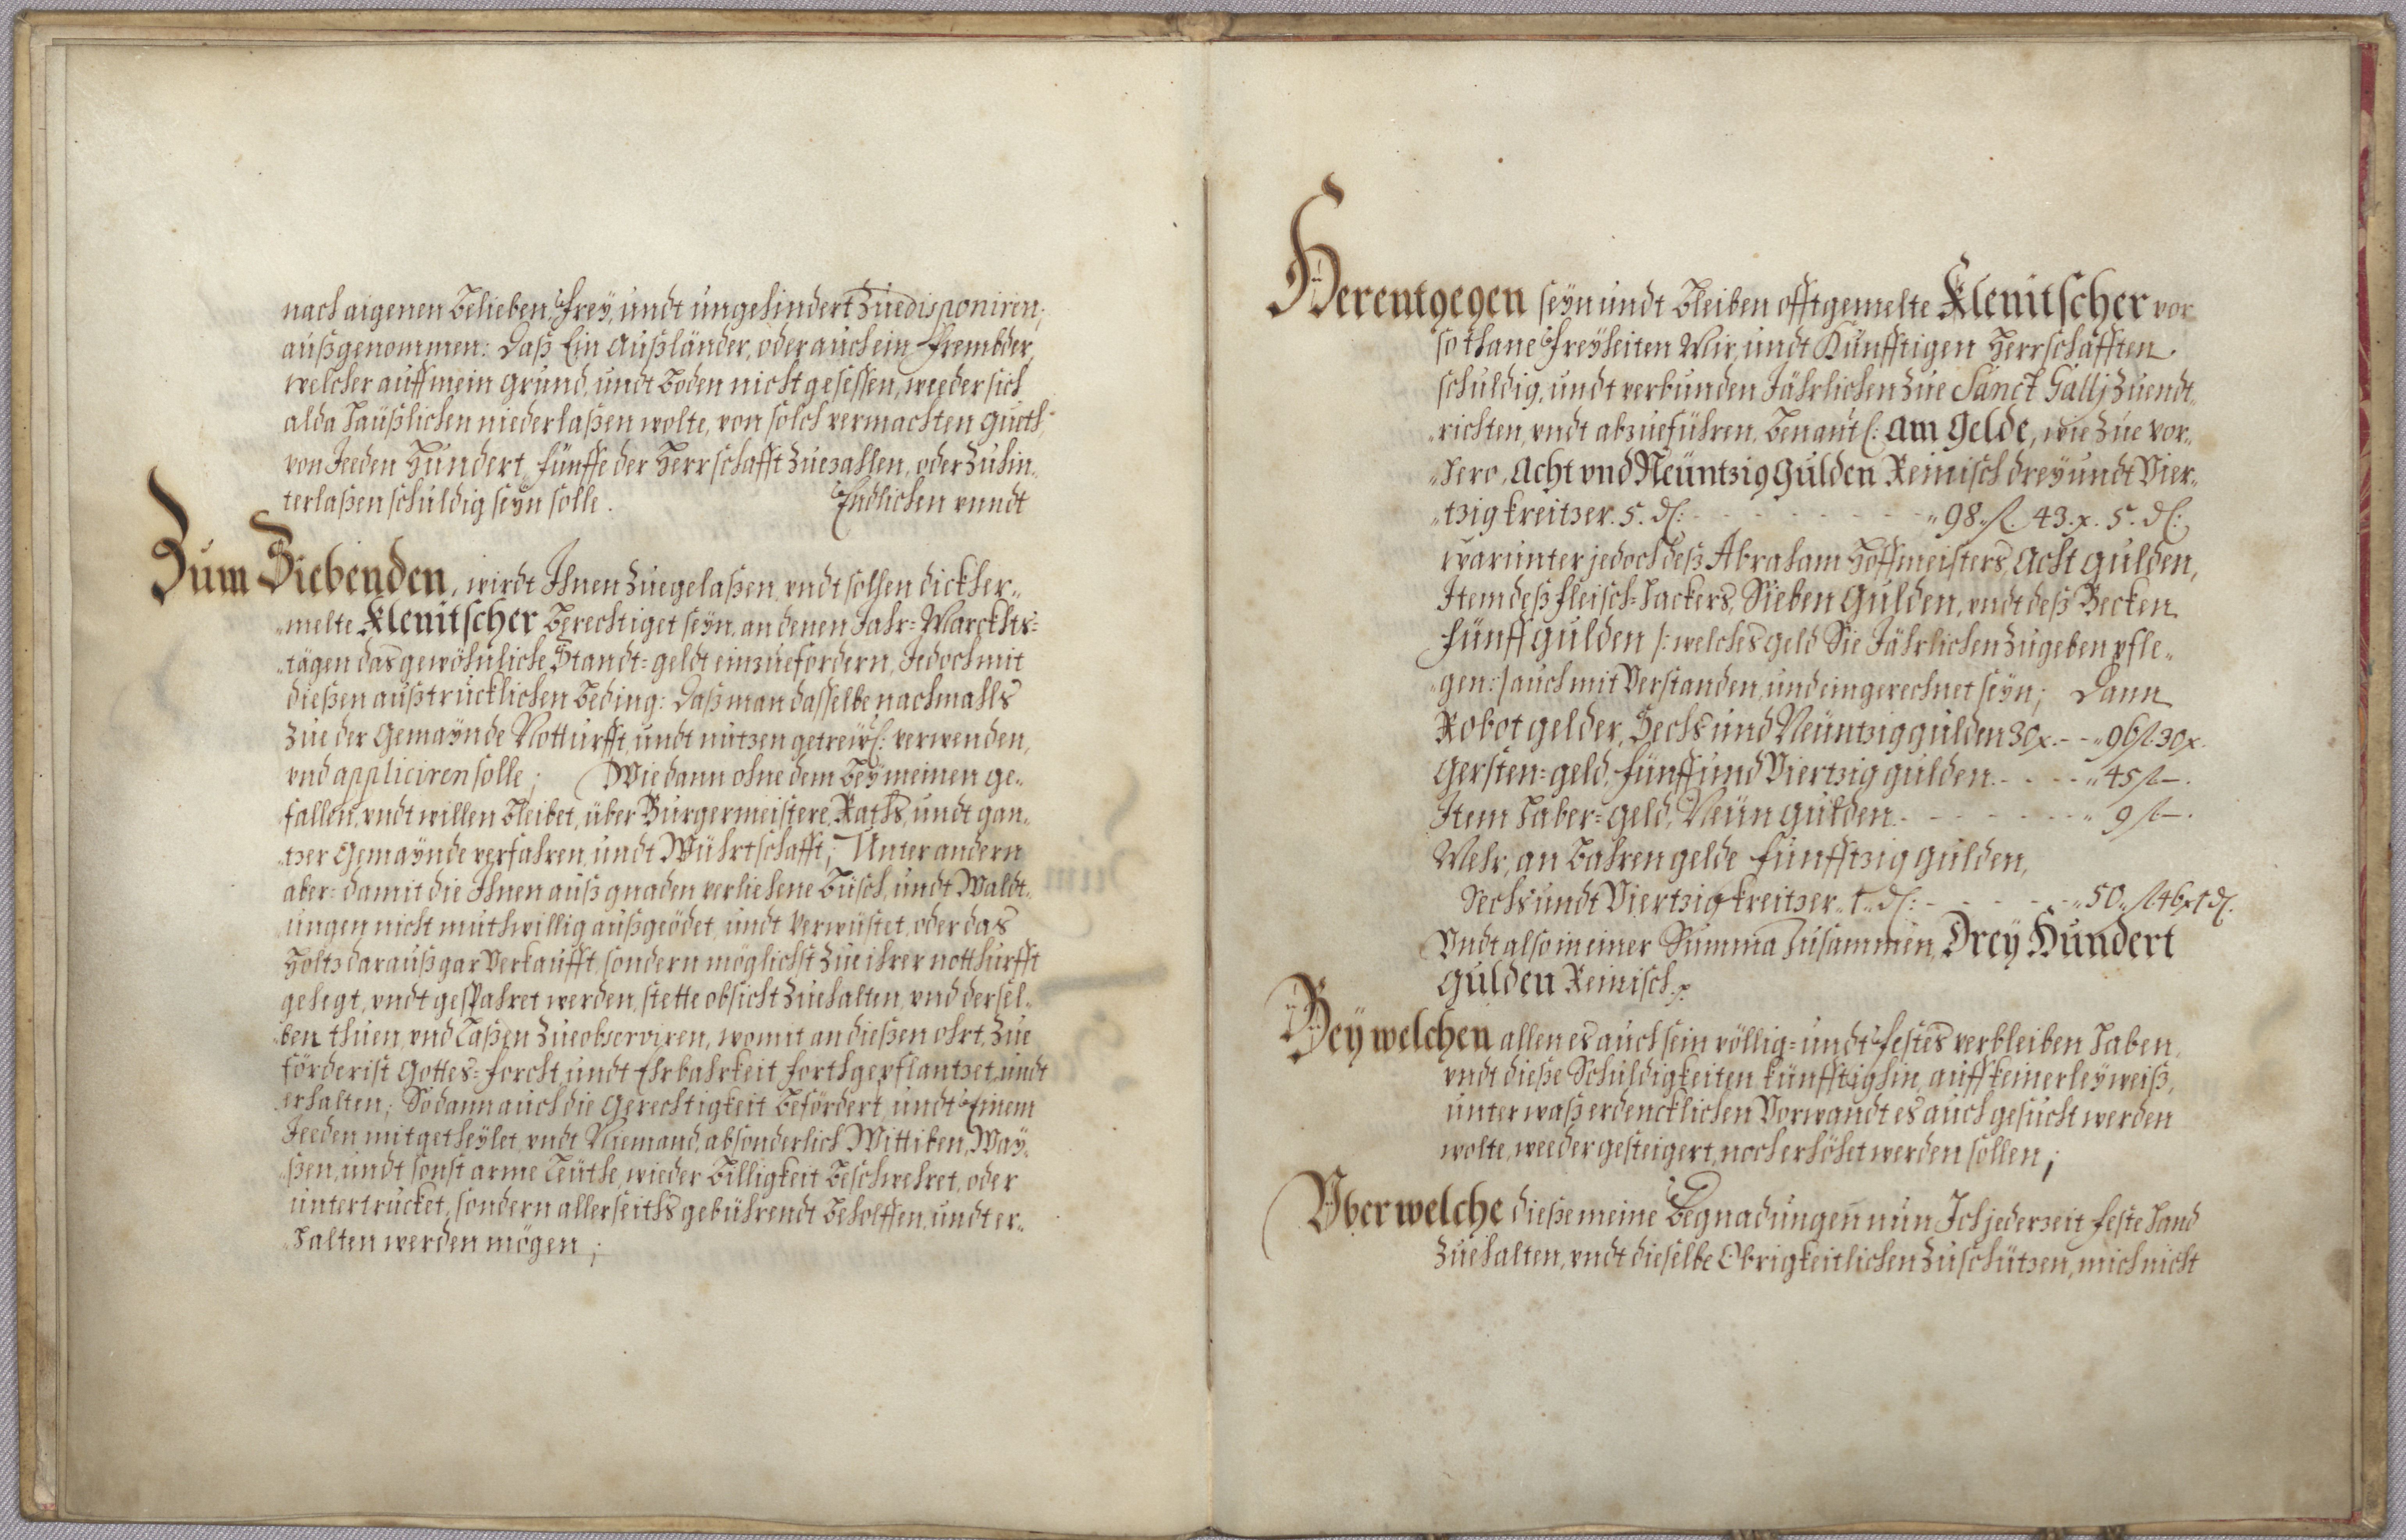 nach aigenen Belieben, Frey, undt ungehindert Zue disponiren;
außgenommen: Daß Ein Außländer, oder auch ein Frembder,
welcher auff mein grund, undt Boden nicht geseßen, weeder sich
alda häußlichen niederlaßen wolte, von solch vermachten gueth,
von Jeeden Hundert, fünffe der Herrschafft Zuezahlen, oder Zuhin„
terlaßen schuldig seyn solle. Endlichen vundt
Zum Siebenden, wirdt Ihnen Zuegelaßen, vndt sollen dickher„
„melte Klenitscher Berechtiget seyn, an denen Jahr=Marckhts=
„tägen das gewöhnliche Standt=geldt einzuefordern, Jedoch mit
dießen außtrücklichen Beding: Daß man dasselbe nachmahls
Zue der Gemaynde Notturfft, undt nutzen getreül: verwenden,
vnd appliciren solle; Wie dann ohne dem Bey meinen ge„
fallen, vndt willen Bleibet, über Burgermeistere, Raths, undt gan„
„tzer Gemaynde verfahren, undt Würtschafft; Unter andern
aber=damit die Ihnen auß gnaden verliehene Büsch, undt Waldt„
„ungen nicht muthwillig außgeödet, undt Verwüstet, oder das
Holtz darauß gar Verkaufft, sondern möglichst Zue ihrer notthurfft
gehegt, vndt gespahret werden, stette obsicht Zuehalten, vnd dersel„
„ben thuen, vnd Laßen Zue observiren, womit an dießen ohrt, Zue
förderist Gottes=forcht, undt Ehrbahrkeit forthgepflantzet, undt
erhalten; So dann auch die Gerechtigkeit Befördert, undt Einem
Jeeden mitgetheylet, vndt Niemand, absonderlich Wittiben, Way„
„ßen, undt sonst arme Leüthe, wieder Billigkeit Beschwehret, oder
untertrucket, sondern allerseiths gebührendt Beholffen, undt er„
„halten werden mögen;
Herentgegen seyn undt Bleiben offtgemelte Klenitscher vor
so thane Freyheiten Mir, undt Künfftigen Herrschafften
schuldig, undt verbunden Jährlichen Zue Sanct Gallj Zuendt„
„richten, vndt abzueführen, Benantl: am Gelde, wie Zue vor„
„hero, Acht vnd Neüntzig Gulden Reinisch drey undt Vier„
„tzig kreitzer. 5. dl: „98„fl. 43. x. 5. dl:
warunter jedoch deß Abraham Hoffmeisters, Acht gulden,
Item deß fleisch=hackers, Sieben Gulden, vndt deß Becken
fünff gulden /: welches geld Sie Jährlichen Zugeben pfle„
„gen:/ auch mit Verstanden, und eingerechnet seyn; Dann
Robot gelder, Sechs und Neüntzig gulden 30x. „96 fl 30x.
Gersten=geld, fünff und Viertzig gulden. „45 fl —.
Item haber=geld, Neün gulden. „ 9 fl —.
Mehr, an Bahren gelde fünfftzig gulden,
Sechs undt Viertzig kreitzer„ 1„ dl: „50„fl 46x 1 dl.
Vndt also in einer Summa Zusammen, Drey Hundert
Gulden Reinisch.
Bey welchen allen es auch sein völlig=undt Festes verbleiben haben,
vndt dieße Schuldigkeiten künfftighin, auff keinerley weiß,
unter waß erdencklichen Vorwandt es auch gesucht werden
wolte, weeder gesteigert, noch erhöhet werden sollen;
Vber welche dieße meine Begnadungen nun Ich jederzeit feste hand
Zuehalten, vndt dieselbe Obrigkeitlichen Zuschützen, mich nicht